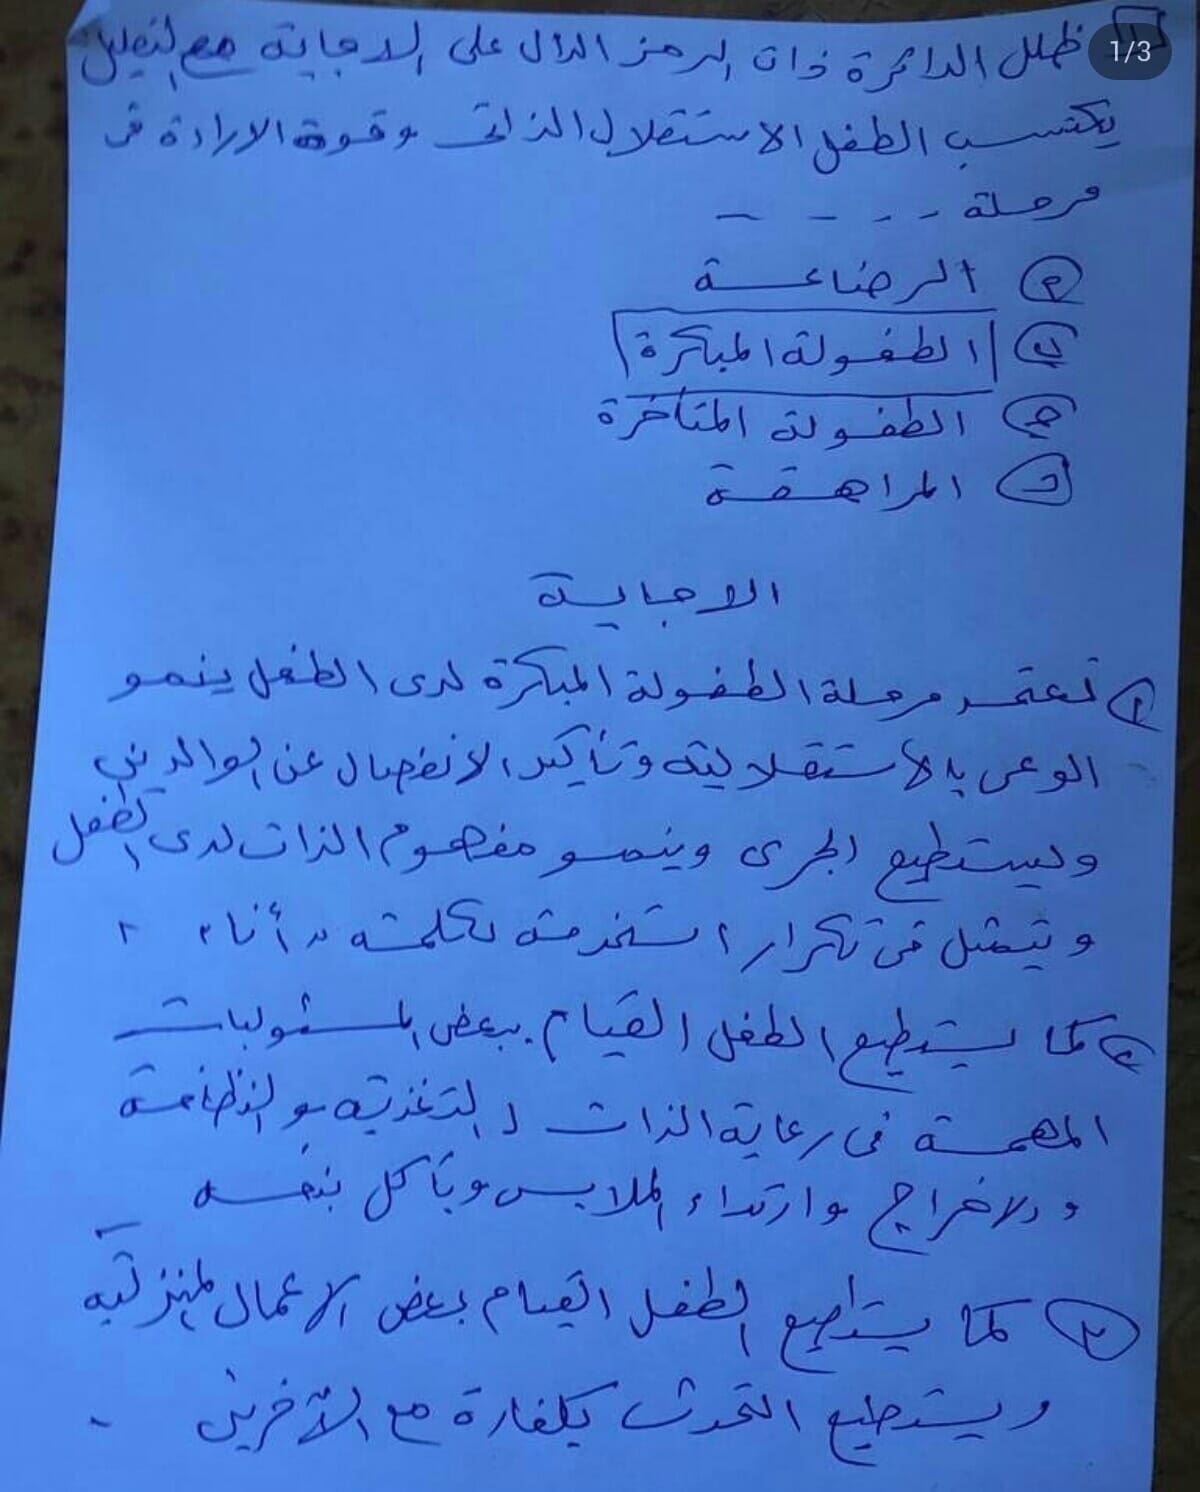 1/3
ظلل الدائرة ذات الرمز الدال على الاجابة مع التعليل
يكتسب الطفل الاستقلال الذاتى وقوة الارادة فى
مرحلة - - - -
م الرضاعة
ب الطفولة المبكرة
ج الطفولة المتأخرة
د المراهقة
الاجابة
١ تعتمد مرحلة الطفولة المبكرة لدى الطفل ينمو
الوعى بالأستقلالية وتأكيد الانفصال عن الوالدين
ويستطيع الجرى وينمو مفهوم الذات لدى الطفل
ويتمثل فى تكرار استخدمة لكلمته " أنا "
٢ كما يستطيع الطفل القيام ببعض المسئوليات
المهمة فى رعاية الذات التغذية والنظافة
والاخراج وارتداء الملابس ويأكل بنفسه
٣ كما يستطيع الطفل القيام بعض الاعمال المنزلية
ويستطيع التحدث بكفارة مع الآخرين .